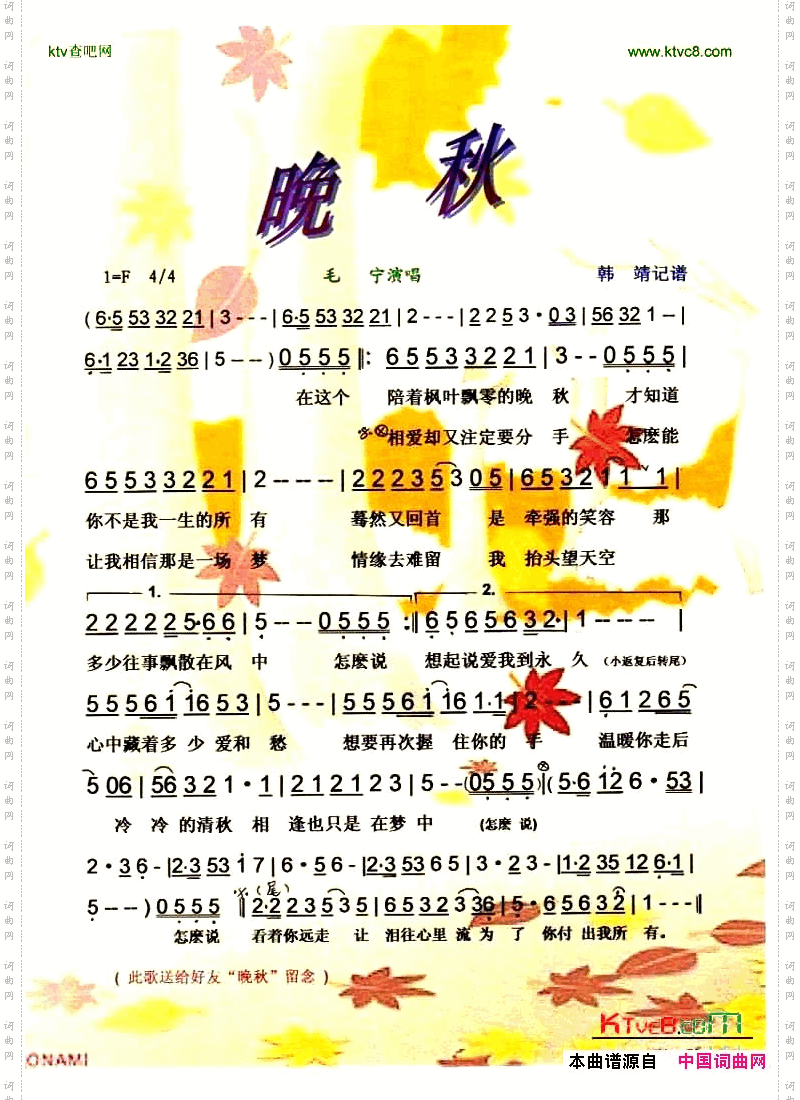 ktv查吧网 www.ktvc8.com
晚 秋
1=F 4/4 毛 宁演唱 韩 靖记谱
( 6·5 53 32 21 | 3 - - - | 6·5 53 32 21 | 2 - - - | 2 2 5 3 · 0 3 | 56 32 1 -- |
6·1 23 1·2 36 | 5 -- -- ) 0 5 5 5 ‖: 6 5 5 3 3 2 2 1 | 3 - - 0 5 5 5 |
在这个 陪着枫叶飘零的晚 秋 才知道
相爱却又注定要分 手 怎麽能
6 5 5 3 3 2 2 1 | 2 -- -- | 2 2 2 3 5 3 0 5 | 6 5 3 2 1 1 1 |
你不是我一生的所 有 蓦然又回首 是 牵强的笑容 那
让我相信那是一场 梦 情缘去难留 我 抬头望天空
1. 2.
2 2 2 2 2 5·6 6 | 5 -- -- 0 5 5 5 :‖ 6 5 6 5 6 3 2· | 1 -- -- -- |
多少往事飘散在风 中 怎麽说 想起说爱我到永 久 (小返复后转尾)
5 5 5 6 1 1 6 5 3 | 5 - - - | 5 5 5 6 1 1 6 1·1 | 2 - - - | 6 1 2 6 5 |
心中藏着多 少 爱和 愁 想要再次握 住你的 手 温暖你走后
5 0 6 | 5 6 3 2 1 · 1 | 2 1 2 1 2 3 | 5 -- (0 5 5 5) ‖ ( 5·6 1 2 6 · 5 3 |
冷 冷 的清秋 相 逢也只是 在梦 中 (怎麽 说)
2 · 3 6 - | 2·3 53 1 7 | 6 · 5 6 - | 2·3 53 6 5 | 3 · 2 3 - | 1·2 35 12 6·1 |
5 -- -- ) 0 5 5 5 ‖ (尾) 2·2 2 3 5 3 5 | 6 5 3 2 3 3 6 | 5 · 6 5 6 3 2 | 1 -- -- |
怎麽说 看着你远走 让 泪往心里 流 为 了 你付 出我所 有。
( 此歌送给好友“晚秋”留念 )
KTvc8.com
ONAMI 本曲谱源自 中国词曲网
词曲网